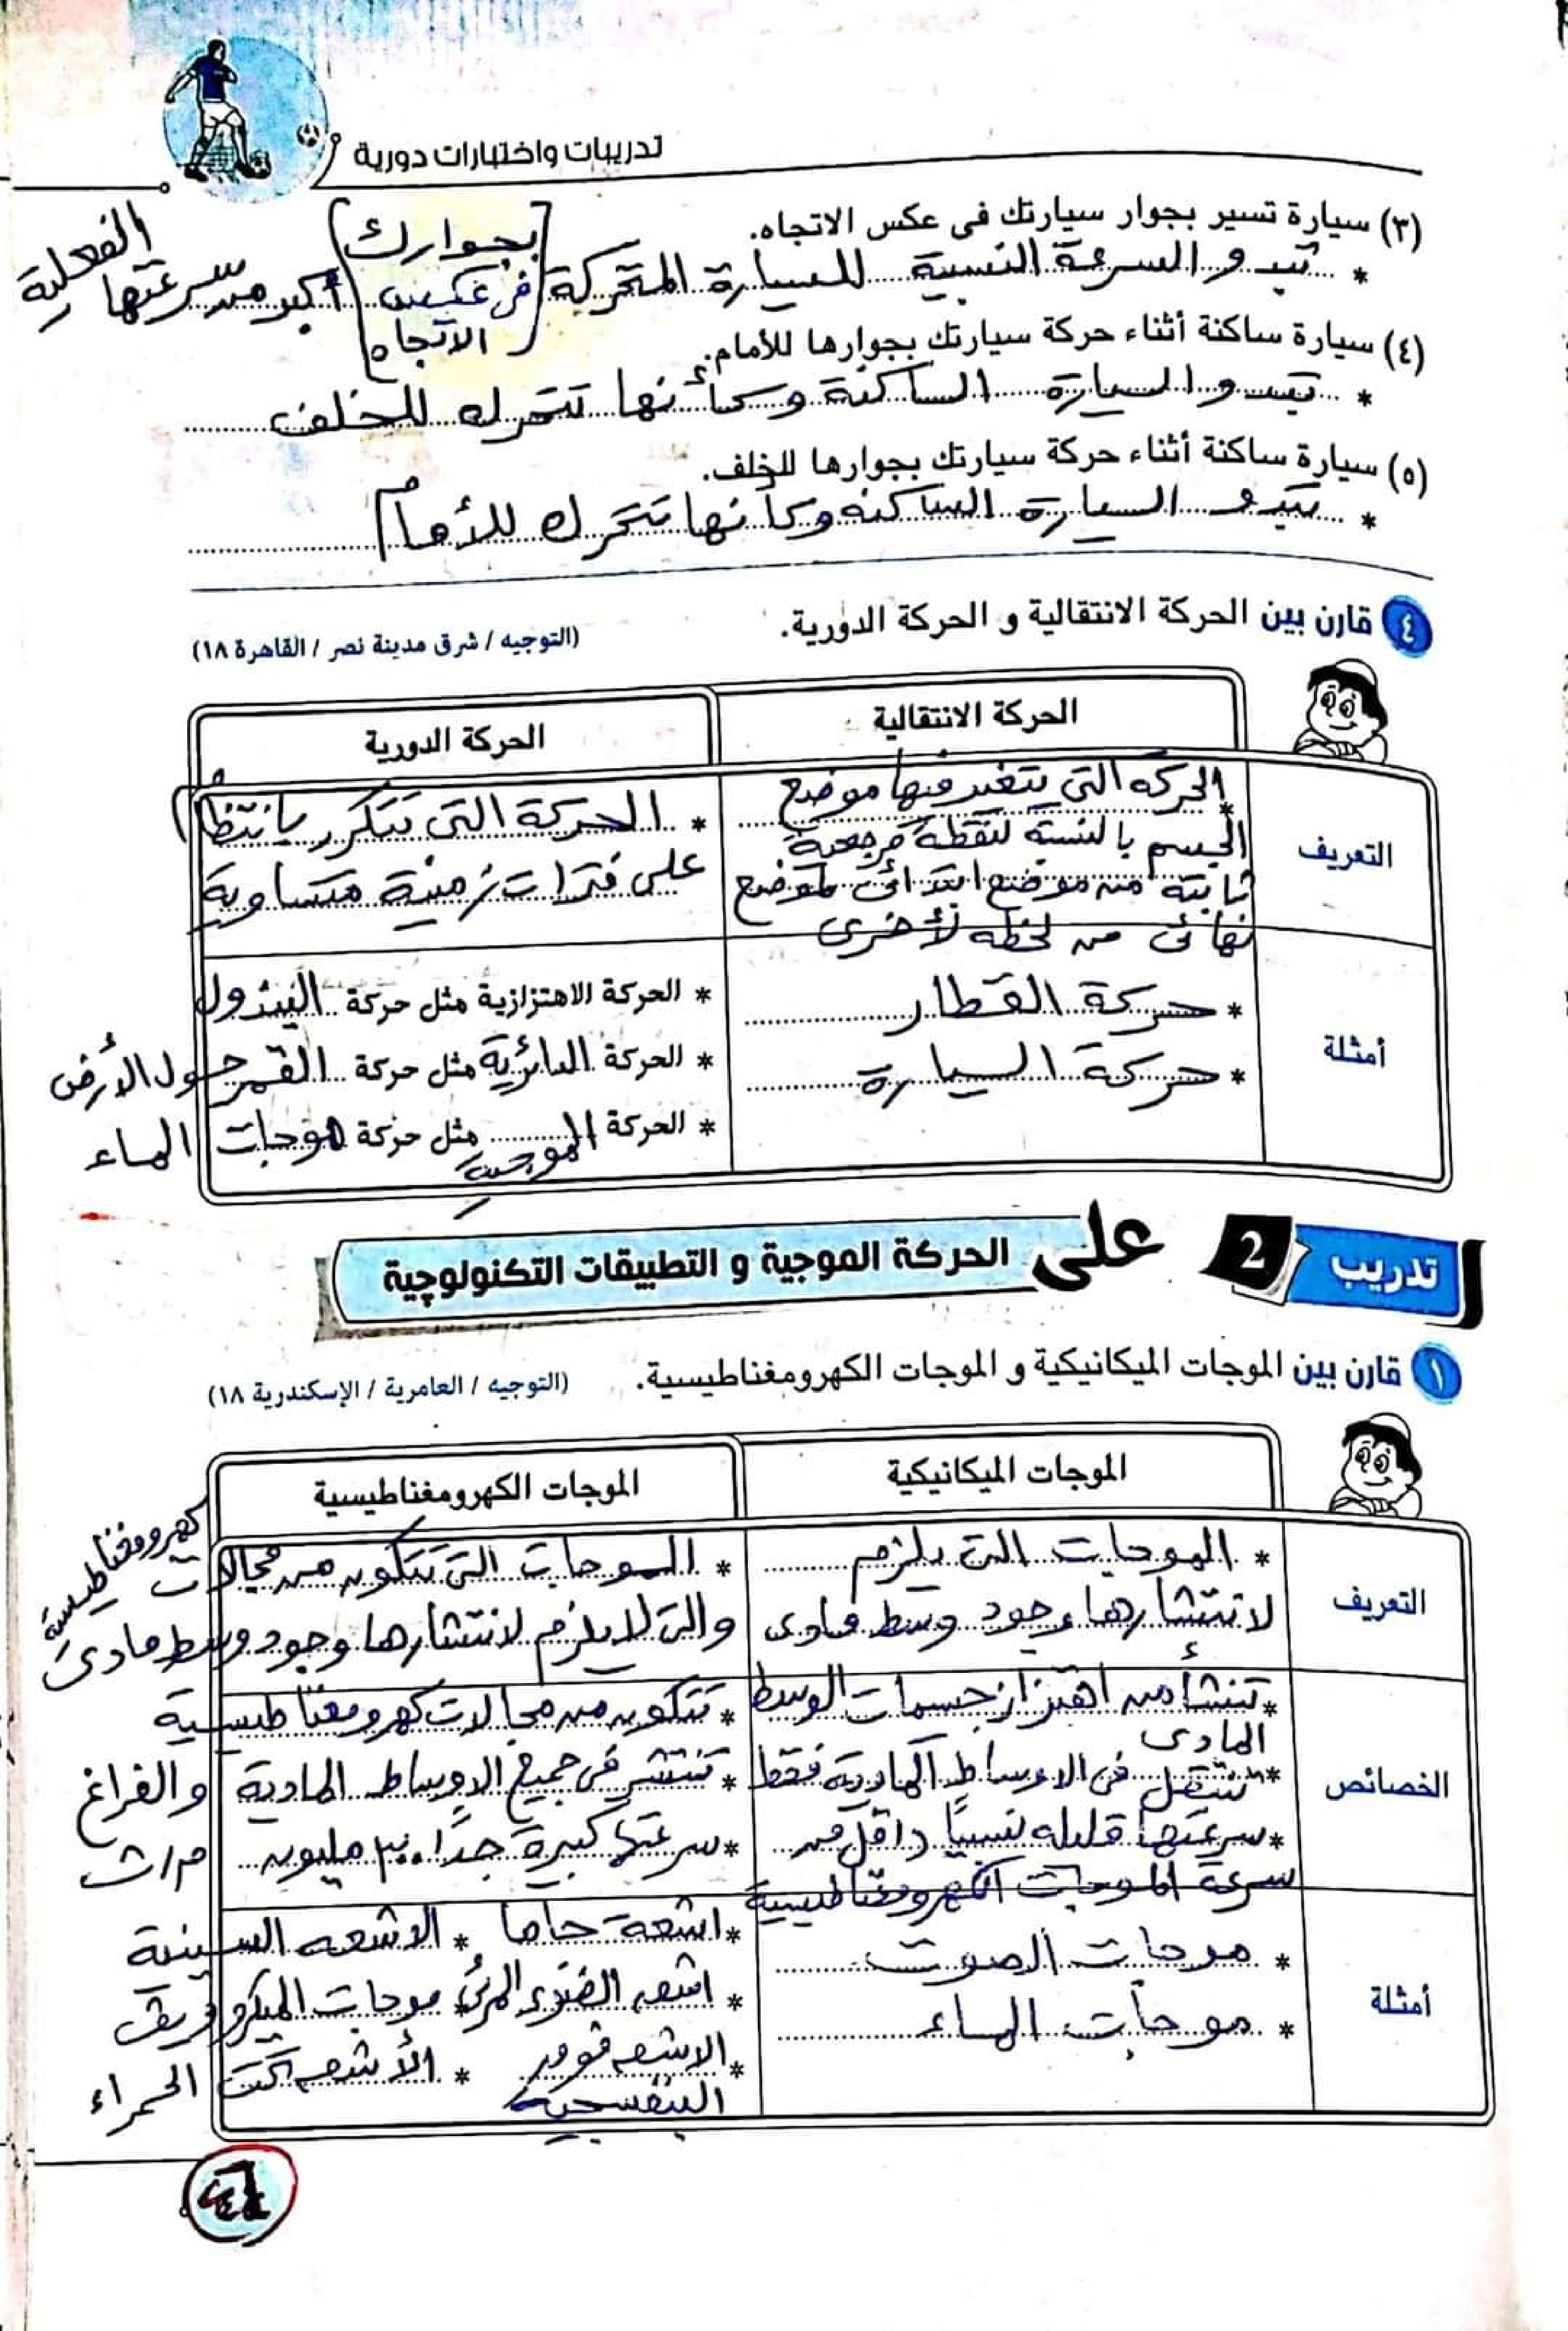 تدريبات واختبارات دورية
(٣) سيارة تسير بجوار سيارتك فى عكس الاتجاه.
* تبدو السرعة النسبية للسيارة المتحركة [بجوارك فى عكس الاتجاه] أكبر من سرعتها الفعلية
(٤) سيارة ساكنة أثناء حركة سيارتك بجوارها للأمام.
* تبدو السيارة الساكنة وكأنها تتحرك للخلف
(٥) سيارة ساكنة أثناء حركة سيارتك بجوارها للخلف.
* تبدو السيارة الساكنة وكأنها تتحرك للأمام
٤ قارن بين الحركة الانتقالية و الحركة الدورية. (التوجيه / شرق مدينة نصر / القاهرة ١٨)
الحركة الانتقالية
الحركة الدورية
التعريف
* الحركة التى يتغير فيها موضع
الجسم بالنسبة لنقطة مرجعية
ثابتة من موضع ابتدائى لموضع
نهائى من لحظة لأخرى
* الحركة التى تتكرر بانتظام
على فترات زمنية متساوية
أمثلة
* حركة القطار
* حركة السيارة
* الحركة الاهتزازية مثل حركة البندول
* الحركة الدائرية مثل حركة القمر حول الأرض
* الحركة الموجية مثل حركة موجات الماء
تدريب 2 على الحركة الموجية و التطبيقات التكنولوچية
١ قارن بين الموجات الميكانيكية و الموجات الكهرومغناطيسية. (التوجيه / العامرية / الإسكندرية ١٨)
الموجات الميكانيكية
الموجات الكهرومغناطيسية
التعريف
* الموجات التى يلزم
لانتشارها وجود وسط مادى
* الموجات التى تتكون من مجالات كهرومغناطيسية
والتى لا يلزم لانتشارها وجود وسط مادى
الخصائص
* تنشأ من اهتزاز جسيمات الوسط
المادى
* تنتقل فى الاوساط المادية فقط
* سرعتها قليله نسبيًا واقل من
سرعة الموجات الكهرومغناطيسية
* تتكون من مجالات كهرومغناطيسية
* تنتشر فى جميع الاوساط المادية والفراغ
* سرعتها كبيرة جدًا ٣٠٠ مليون م/ث
أمثلة
* موجات الصوت
* موجات الماء
* اشعة جاما * الاشعه السينية
* اشعه الضوء المرئى * موجات الميكروويف
* الاشعه فوق * الأشعه تحت الحمراء
البنفسجية